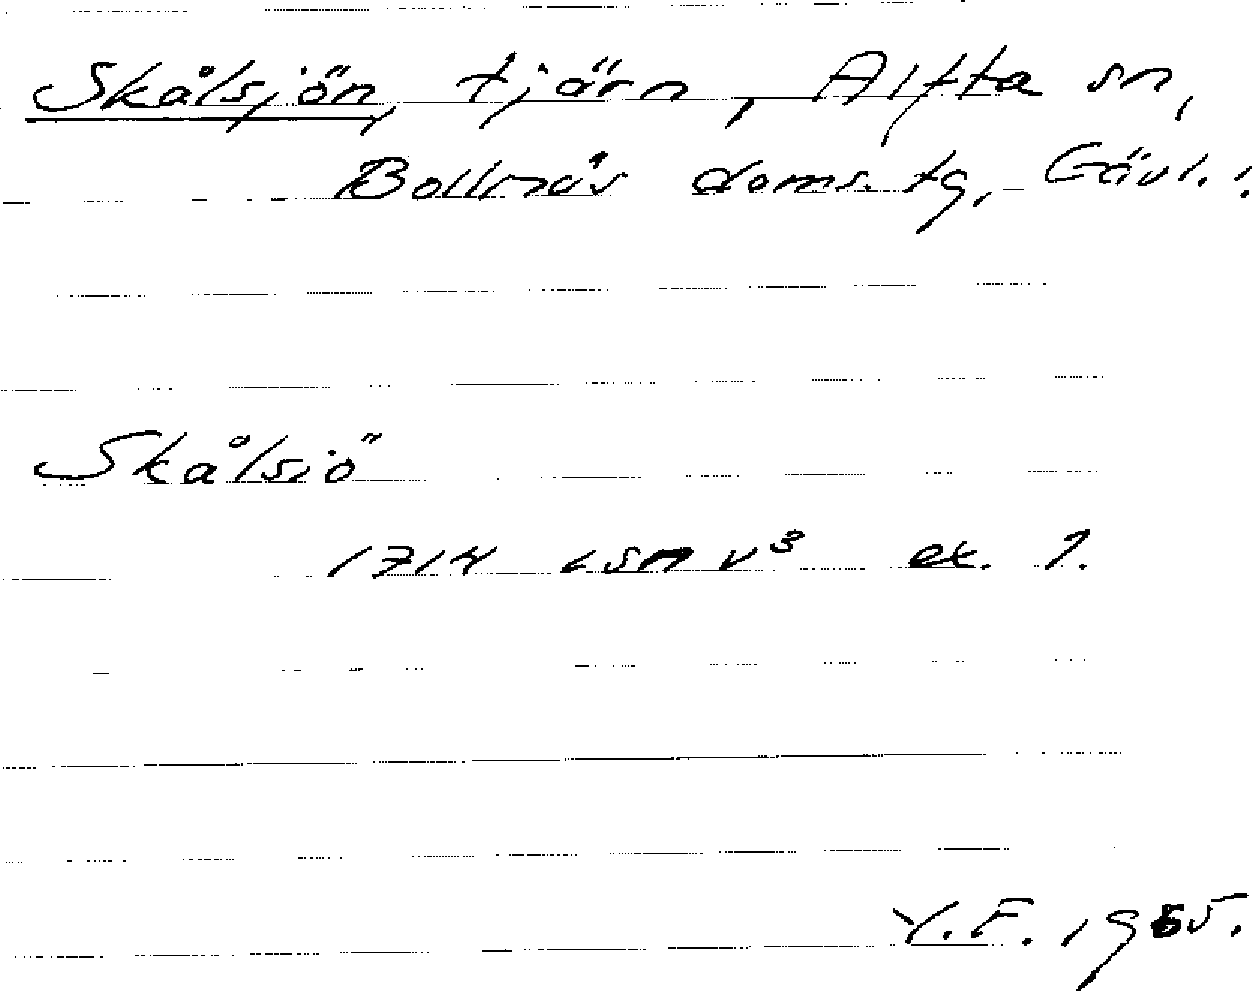 Skålsjön, tjärn, Alfta sn,
Bollnäs doms. tg, Gävl. l.
Skålsiö
1714 LSA v³ ex. 1.
Y.F. 1965.